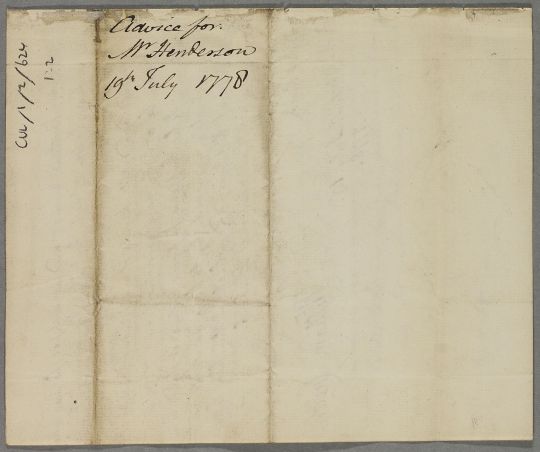 Advice for.
Mr Henderson
19th July 1778
CUL/1/2/624
1:2